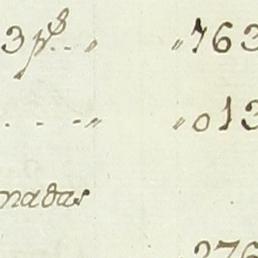 3 p^s.. " " 763
. - - " " 013
nadas
276